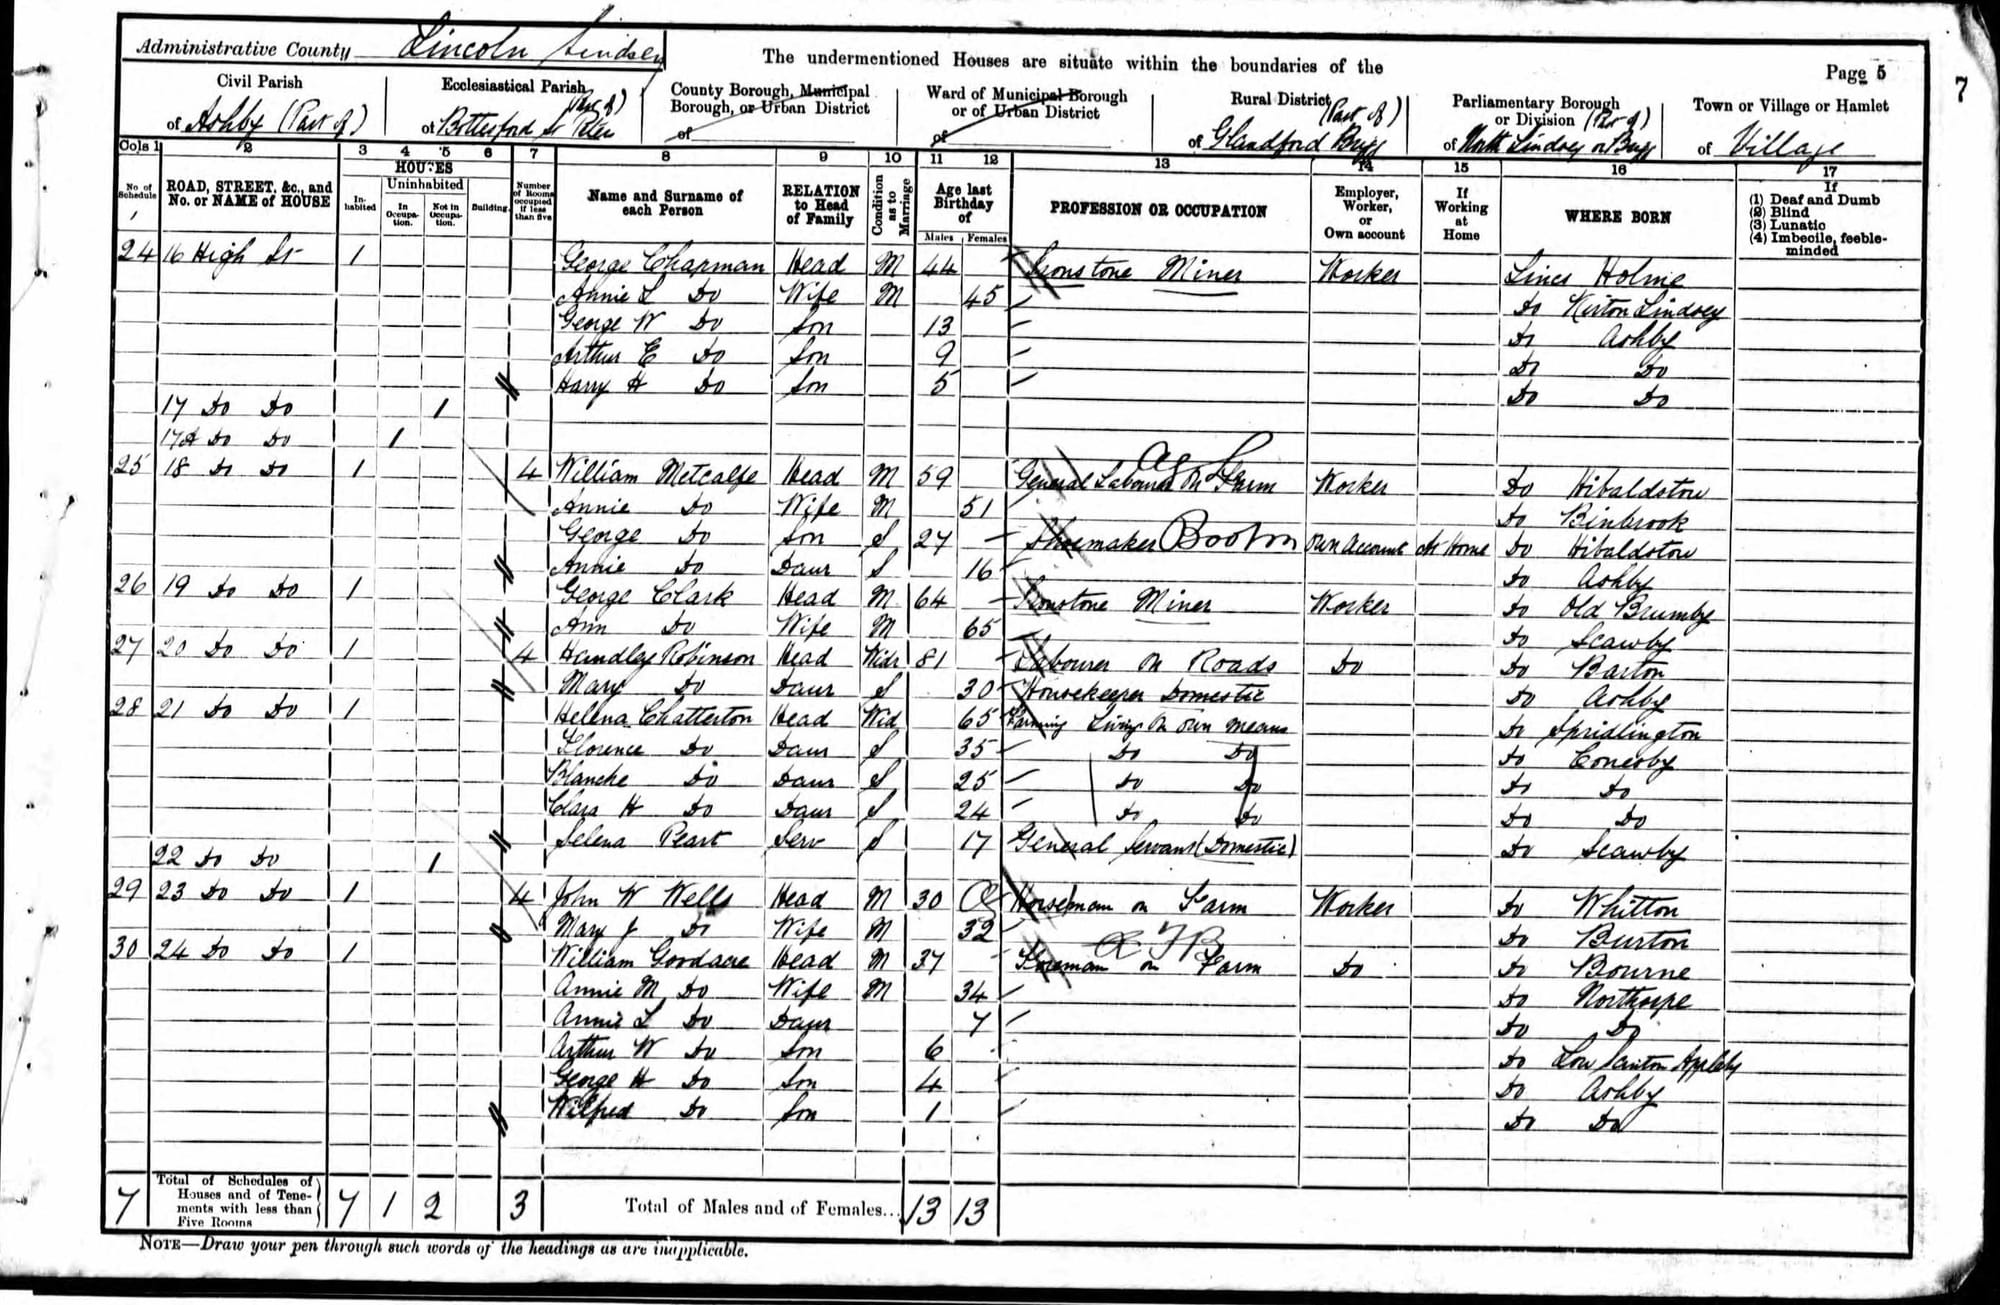 Administrative County Lincoln Lindsey
The undermentioned Houses are situate within the boundaries of the
Page 5
7
Civil Parish of Ashby (Part of)
Ecclesiastical Parish of Bottesford St Peter (Part of)
County Borough, Municipal Borough, or Urban District of
Ward of Municipal Borough or of Urban District of
Rural District of Glandford Brigg (Part of)
Parliamentary Borough or Division of North Lindsey or Brigg (Par of)
Town or Village or Hamlet of Village
Cols 1 2 3 4 5 6 7 8 9 10 11 12 13 14 15 16 17
No of Schedule
ROAD, STREET, &c., and No. or NAME of HOUSE
HOUSES
Inhabited
Uninhabited
In Occupation.
Not in Occupation.
Building.
Number of Rooms occupied if less than five
Name and Surname of each Person
RELATION to Head of Family
Condition as to Marriage
Age last Birthday of
Males Females
PROFESSION OR OCCUPATION
Employer, Worker, or Own account
If Working at Home
WHERE BORN
If
(1) Deaf and Dumb
(2) Blind
(3) Lunatic
(4) Imbecile, feeble-minded
24 16 High St 1 George Chapman Head M 44 Ironstone Miner Worker Lincs Holme
Annie L Do Wife M 45 Do Kirton Lindsey
George W Do Son 13 Do Ashby
Arthur E Do Son 9 Do Do
Harry H Do Son 5 Do Do
17 Do Do 1
17A Do Do 1
25 18 Do Do 1 4 William Metcalfe Head M 59 General Labourer on Farm Ag L Worker Do Hibaldstow
Annie Do Wife M 51 Do Binbrook
George Do Son S 27 Shoemaker Bootm Own Account At Home Do Hibaldstow
Annie Do Daur S 16 Do Ashby
26 19 Do Do 1 George Clark Head M 64 Ironstone Miner Worker Do Old Brumby
Ann Do Wife M 65 Do Scawby
27 20 Do Do 1 4 Handley Robinson Head Widr 81 Labourer on Roads Do Do Barton
Mary Do Daur S 30 Housekeeper Domestic Do Ashby
28 21 Do Do 1 Helena Chatterton Head Wid 65 Farming Living on own means Do Spridlington
Florence Do Daur S 35 Do Do Do Conesby
Blanche Do Daur S 25 Do Do Do Do
Clara H Do Daur S 24 Do Do Do Do
Selena Peart Serv S 17 General Servant (Domestic) Do Scawby
22 Do Do 1
29 23 Do Do 1 4 John W Wells Head M 30 Horseman on Farm Worker Do Whitton
Mary J Do Wife M 32 Do Burton
30 24 Do Do 1 William Goodacre Head M 37 Foreman on Farm Do Do Bourne
Annie M Do Wife M 34 Do Northorpe
Annie L Do Daur 7 Do Do
Arthur W Do Son 6 Do Low Santon Appleby
George H Do Son 4 Do Ashby
Wilfred Do Son 1 Do Do
7 Total of Schedules of Houses and of Tenements with less than Five Rooms 7 1 2 3 Total of Males and of Females... 13 13
NOTE—Draw your pen through such words of the headings as are inapplicable.